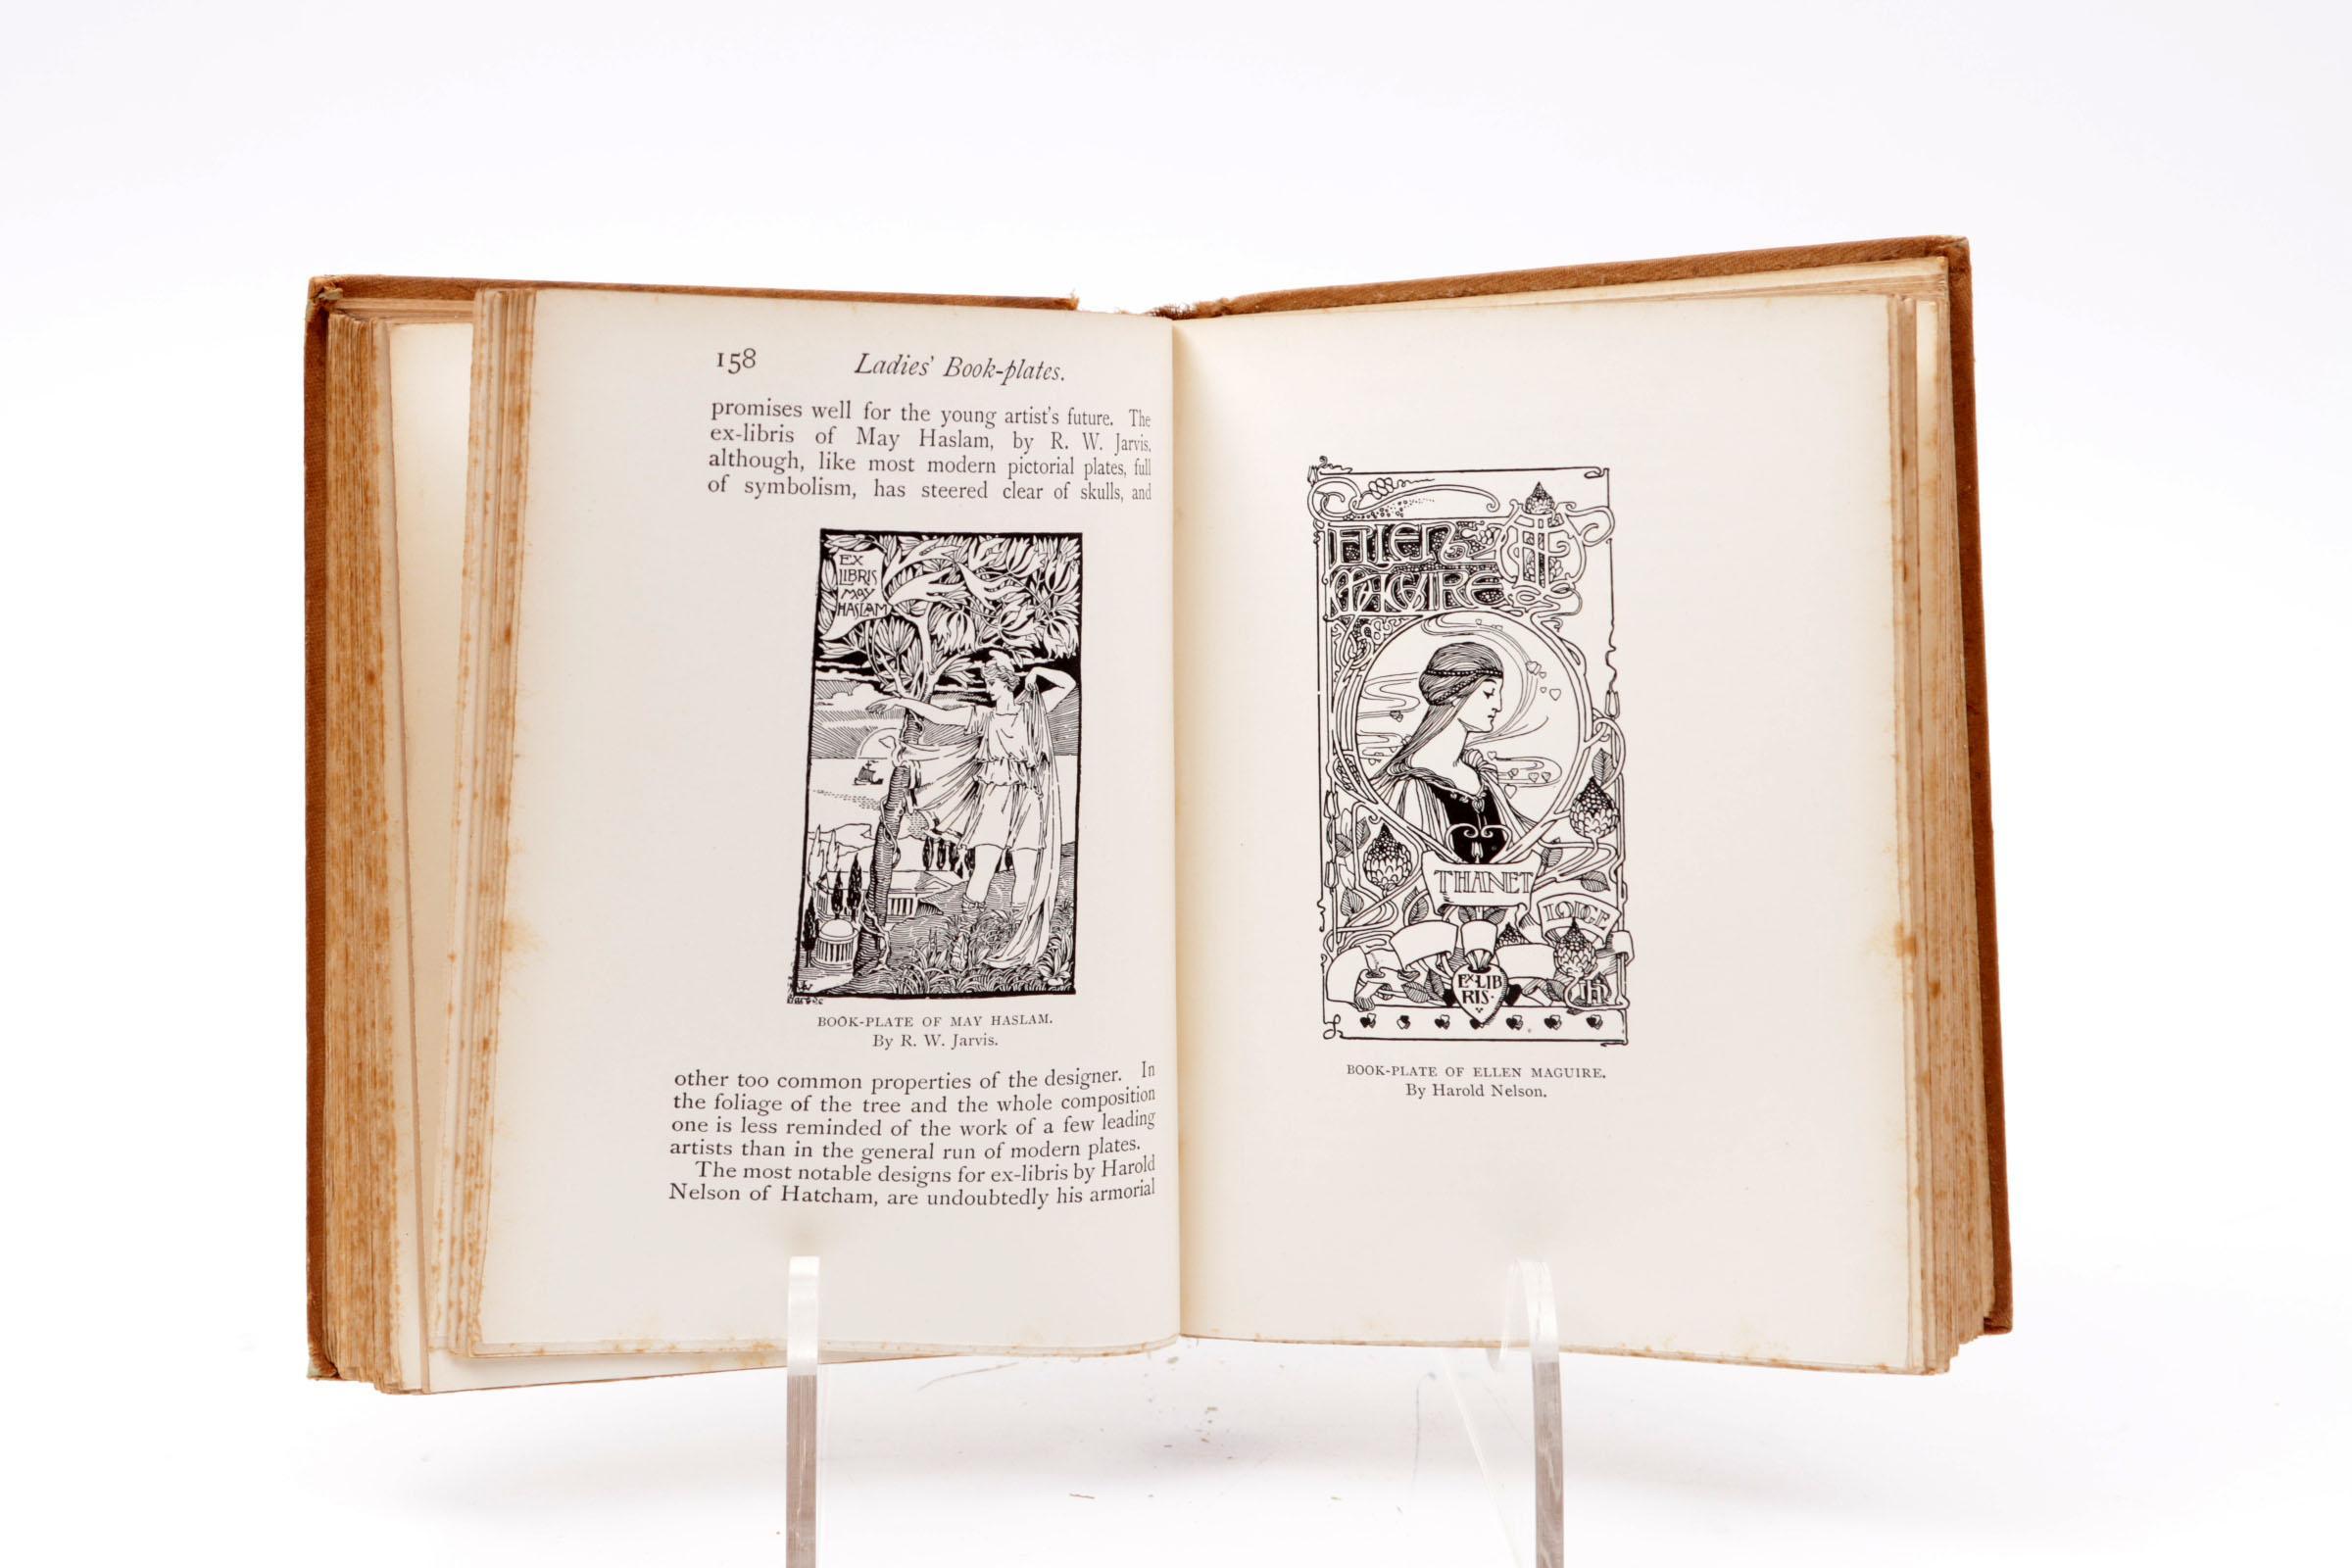 158 Ladies' Book-plates.
promises well for the young artist's future. The
ex-libris of May Haslam, by R. W. Jarvis,
although, like most modern pictorial plates, full
of symbolism, has steered clear of skulls, and
EX
LIBRIS
MAY
HASLAM
BOOK-PLATE OF MAY HASLAM.
By R. W. Jarvis.
other too common properties of the designer. In
the foliage of the tree and the whole composition
one is less reminded of the work of a few leading
artists than in the general run of modern plates.
The most notable designs for ex-libris by Harold
Nelson of Hatcham, are undoubtedly his armorial
ELLEN
MAGUIRE
THANET
LODGE
EX·LIB
RIS·
BOOK-PLATE OF ELLEN MAGUIRE.
By Harold Nelson.